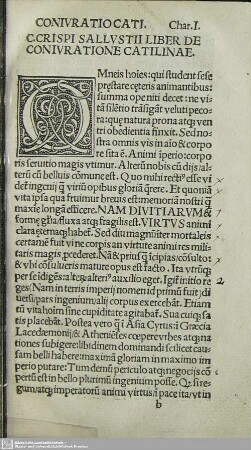 CONIVRATIO CATI. Char. I.
C. CRISPI SALLVSTII LIBER DE
CONIVRATIONE CATILINAE.
OMneis hoies: qui student sese
præstare ceteris animantibus:
summa ope niti decet: ne vi
tā silētio trāsigāt veluti peco
ra: quæ natura prona atq; ven
tri obedientia finxit. Sed no
stra omnis vis in aīo & corpo
re sita ē. Animi īperio: corpo
ris seruitio magis vtimur. Alterū nobis cū diis: al-
terū cū belluis cōmune est. Quo mihi rectiº esse vi
def ingenij q̄ viriū opibus gloriā q̄rere. Et quoniā
vita ipsa qua fruimur breuis est: memoriā nostri q̄
maxie longā efficere. NAM DIVITIARVM &
formę glīa fluxa atq; fragilis est. VIRTVS animi
clara ęternaq; habet. Sed diu magnū īter mortaleis
certamē fuit vi ne corpis an virtute animi res mili-
taris magis p̄cederet. Nā & priusq̄ īcipias: cōsulto:
& vbi cōsulueris mature opus est facto. Ita vtrūq;
per se īdigēs: alteṛ alteriº auxilio eget. Igif initio re
ges (Nam in terris imperij nomen id primū fuit) di
uersi: pars ingenium: alij corpus exercebāt. Etiam
tū vita hoīm sine cupiditate agitabaf. Sua cuiq; sa
tis placebāt. Postea vero q̄ ī Asia Cyrus: ī Græcia
Lacedæmonij & Athenieses cœpere vrbes atq; na
tiones subigere: libidinem dominandi
sam belli habere: maximā gloriam in maximo im
perio putare: Tum demū periculo atq; negocijs cō
pertū est in bello plurimū ingenium posse. Q; si re
gum atq; imperatorū animi virtus ī pace ita vt in
b